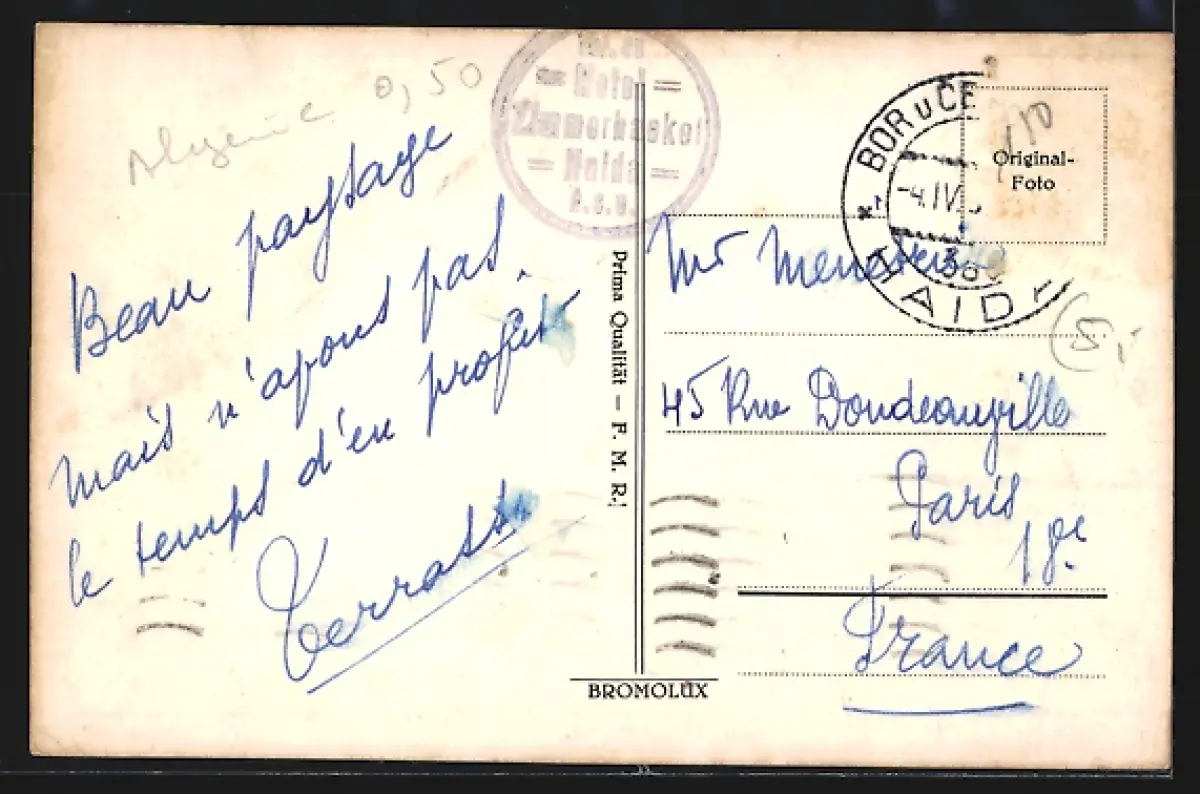 0,50
Beau paysage
mais n'avons pas
le temps d'en profit
Terrass
Hotel
Zimmerhackel
Haida
Č.S.R.
Prima Qualität — F. M. R.!
BROMOLUX
* BOR u ČE
-4.IV.3
HAID
Original-
Foto
Mr
45 Rue Doudeauville
Paris
18e
France